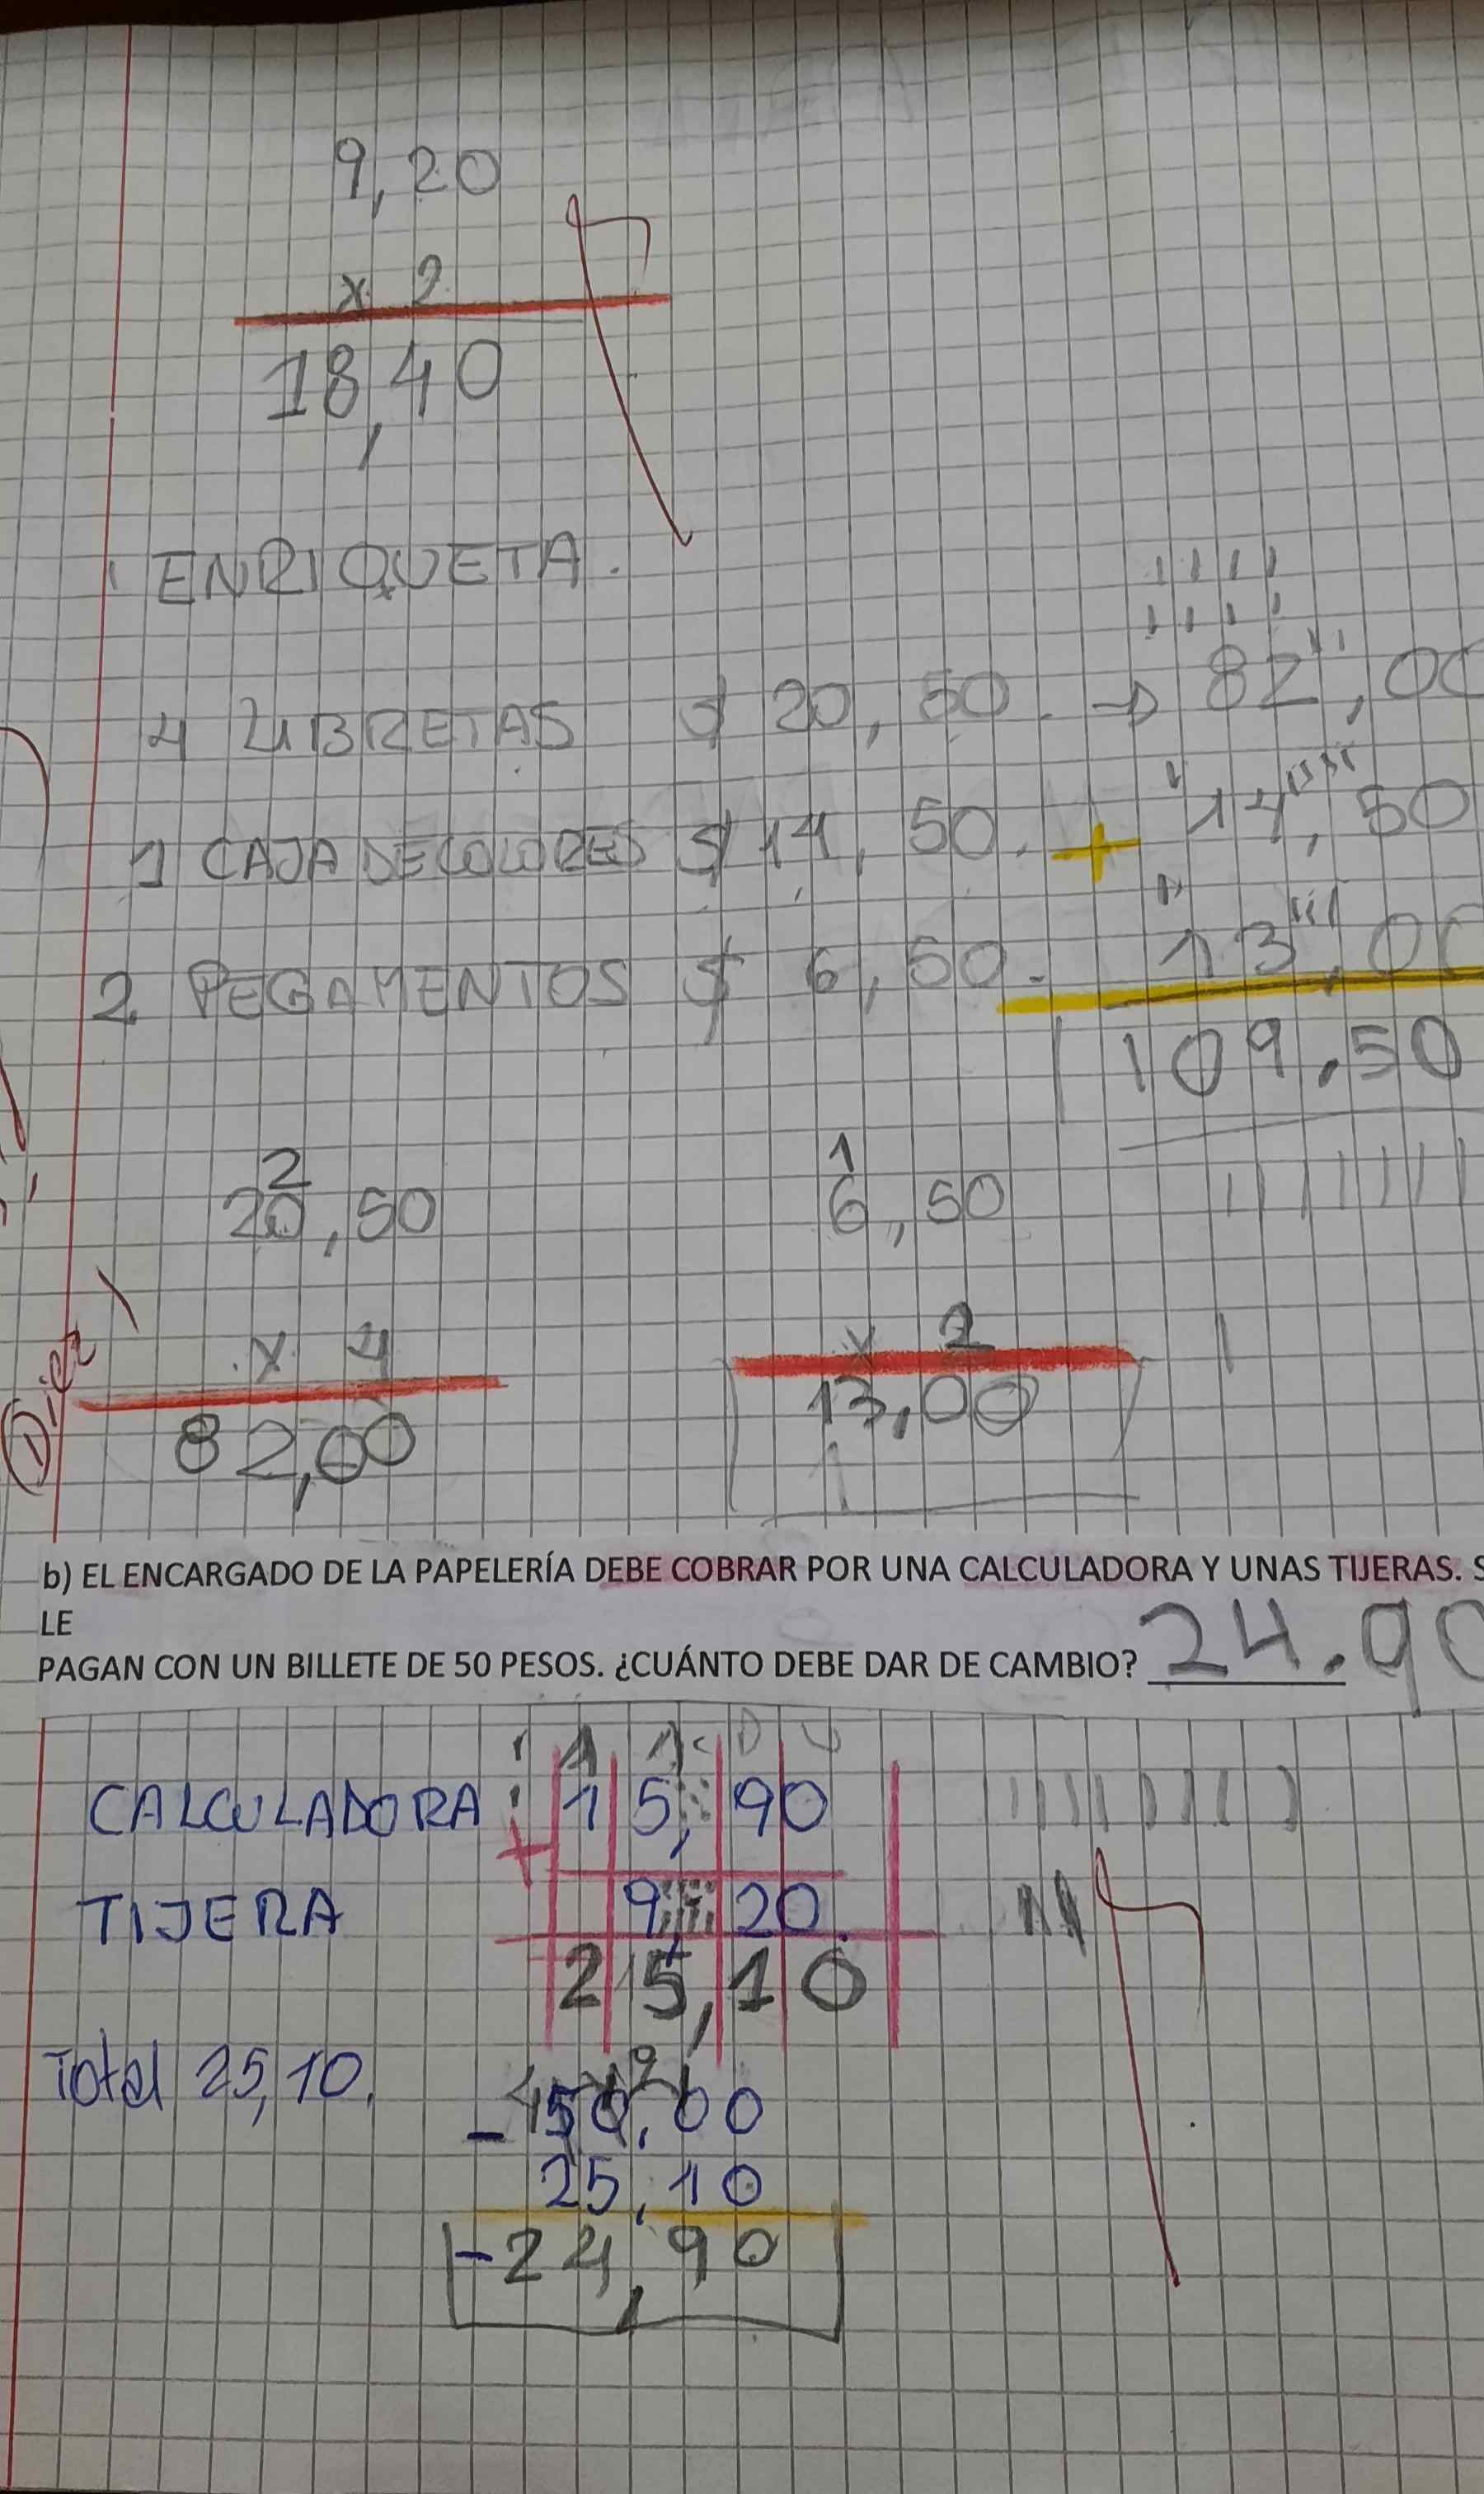 9,20
x 2
18,40
ENRIQUETA.
4 LIBRETAS $ 20,50. → 82,00
1 CAJA DE COLORES $ 14,50. + 14,50
2 PEGAMENTOS $ 6,50. 13,00
109.50
2 1
20,50 6,50
x 4 x 2
82,00 13,00
b) EL ENCARGADO DE LA PAPELERÍA DEBE COBRAR POR UNA CALCULADORA Y UNAS TIJERAS. S
LE
PAGAN CON UN BILLETE DE 50 PESOS. ¿CUÁNTO DEBE DAR DE CAMBIO? 24.90
1 1 C D U
CALCULADORA: 15,90
+
TIJERA 9,20.
25,10
Total 25,10.
- 50,00
25,10
-24,90